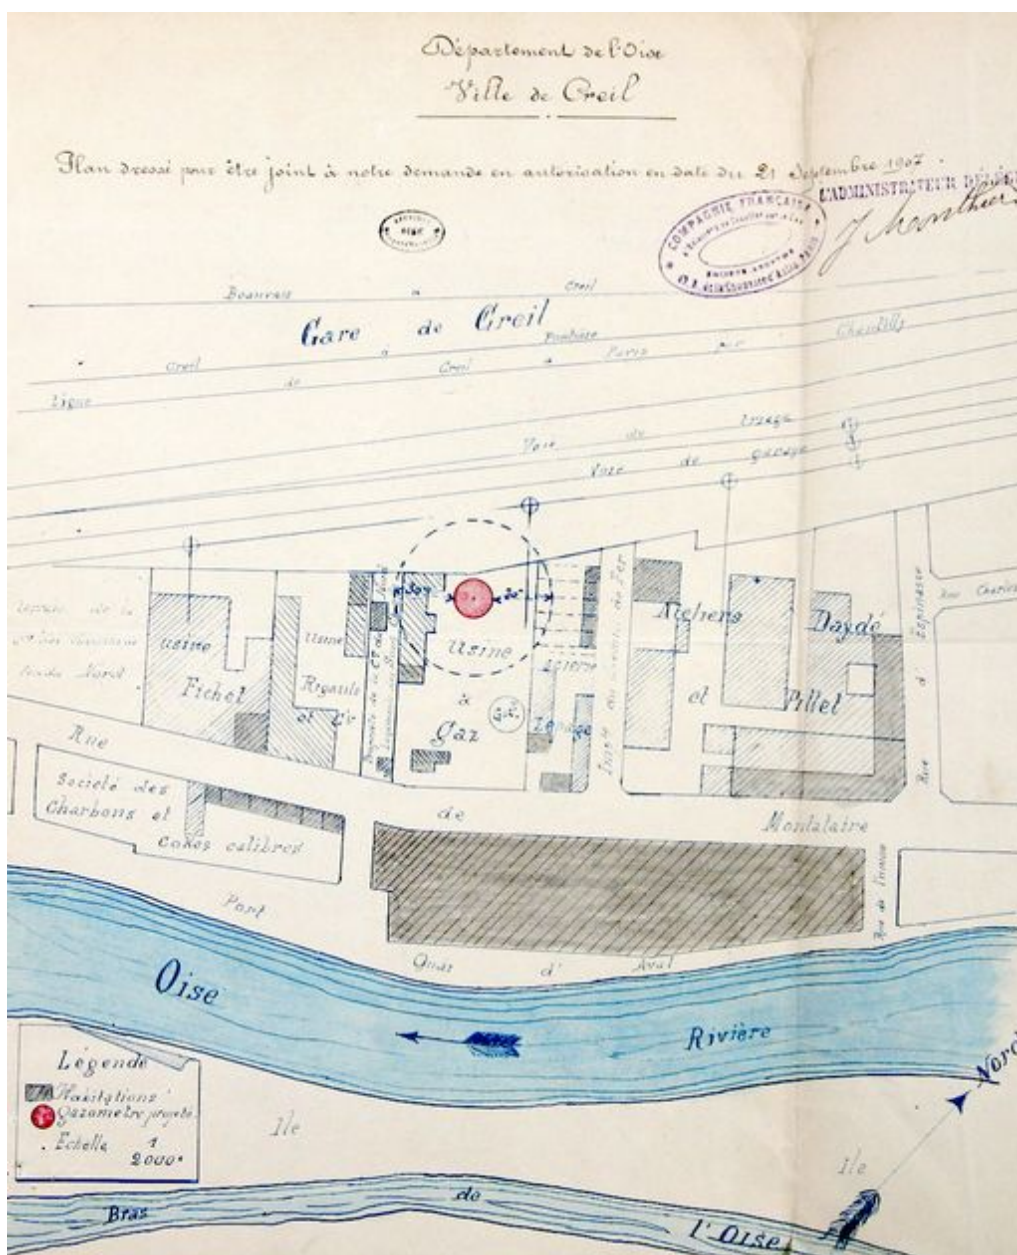 Département de l'Oise
Ville de Creil
Plan dressé pour être joint à notre demande en autorisation en date du 21 Septembre 1907.
L'ADMINISTRATEUR DÉLÉG
COMPAGNIE FRANÇAISE
SOCIÉTÉ ANONYME
OISE
Beauvais à Creil
Gare de Creil
Pontoise
Creil à Creil à Paris par Chantilly
Ligne de
Voie de
Voie de garage
Usine
Fichet
Usine
Rigault
et Cie
Usine
à
Gaz
Scierie
Ateliers
et
Daydé
Pillet
Rue d'Espinasse
Rue Charles
Rue de Montataire
Société des
Charbons et
Cokes calibrés
Port
Quai d'Aval
Rue de l'
Oise
Rivière
Nord
Légende
Habitations
Gazomètre projeté
Echelle 1
2000e
Ile
Ile
Bras de l'Oise